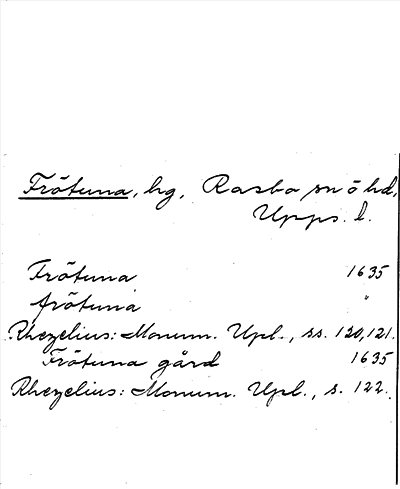 Frötuna, hg, Rasbo sn o hd,
Upps. l.
Frötuna 1635
frötuna "
Rhezelius: Monum. Upl., ss. 120, 121.
Frötuna gård 1635
Rhezelius: Monum. Upl., s. 122.